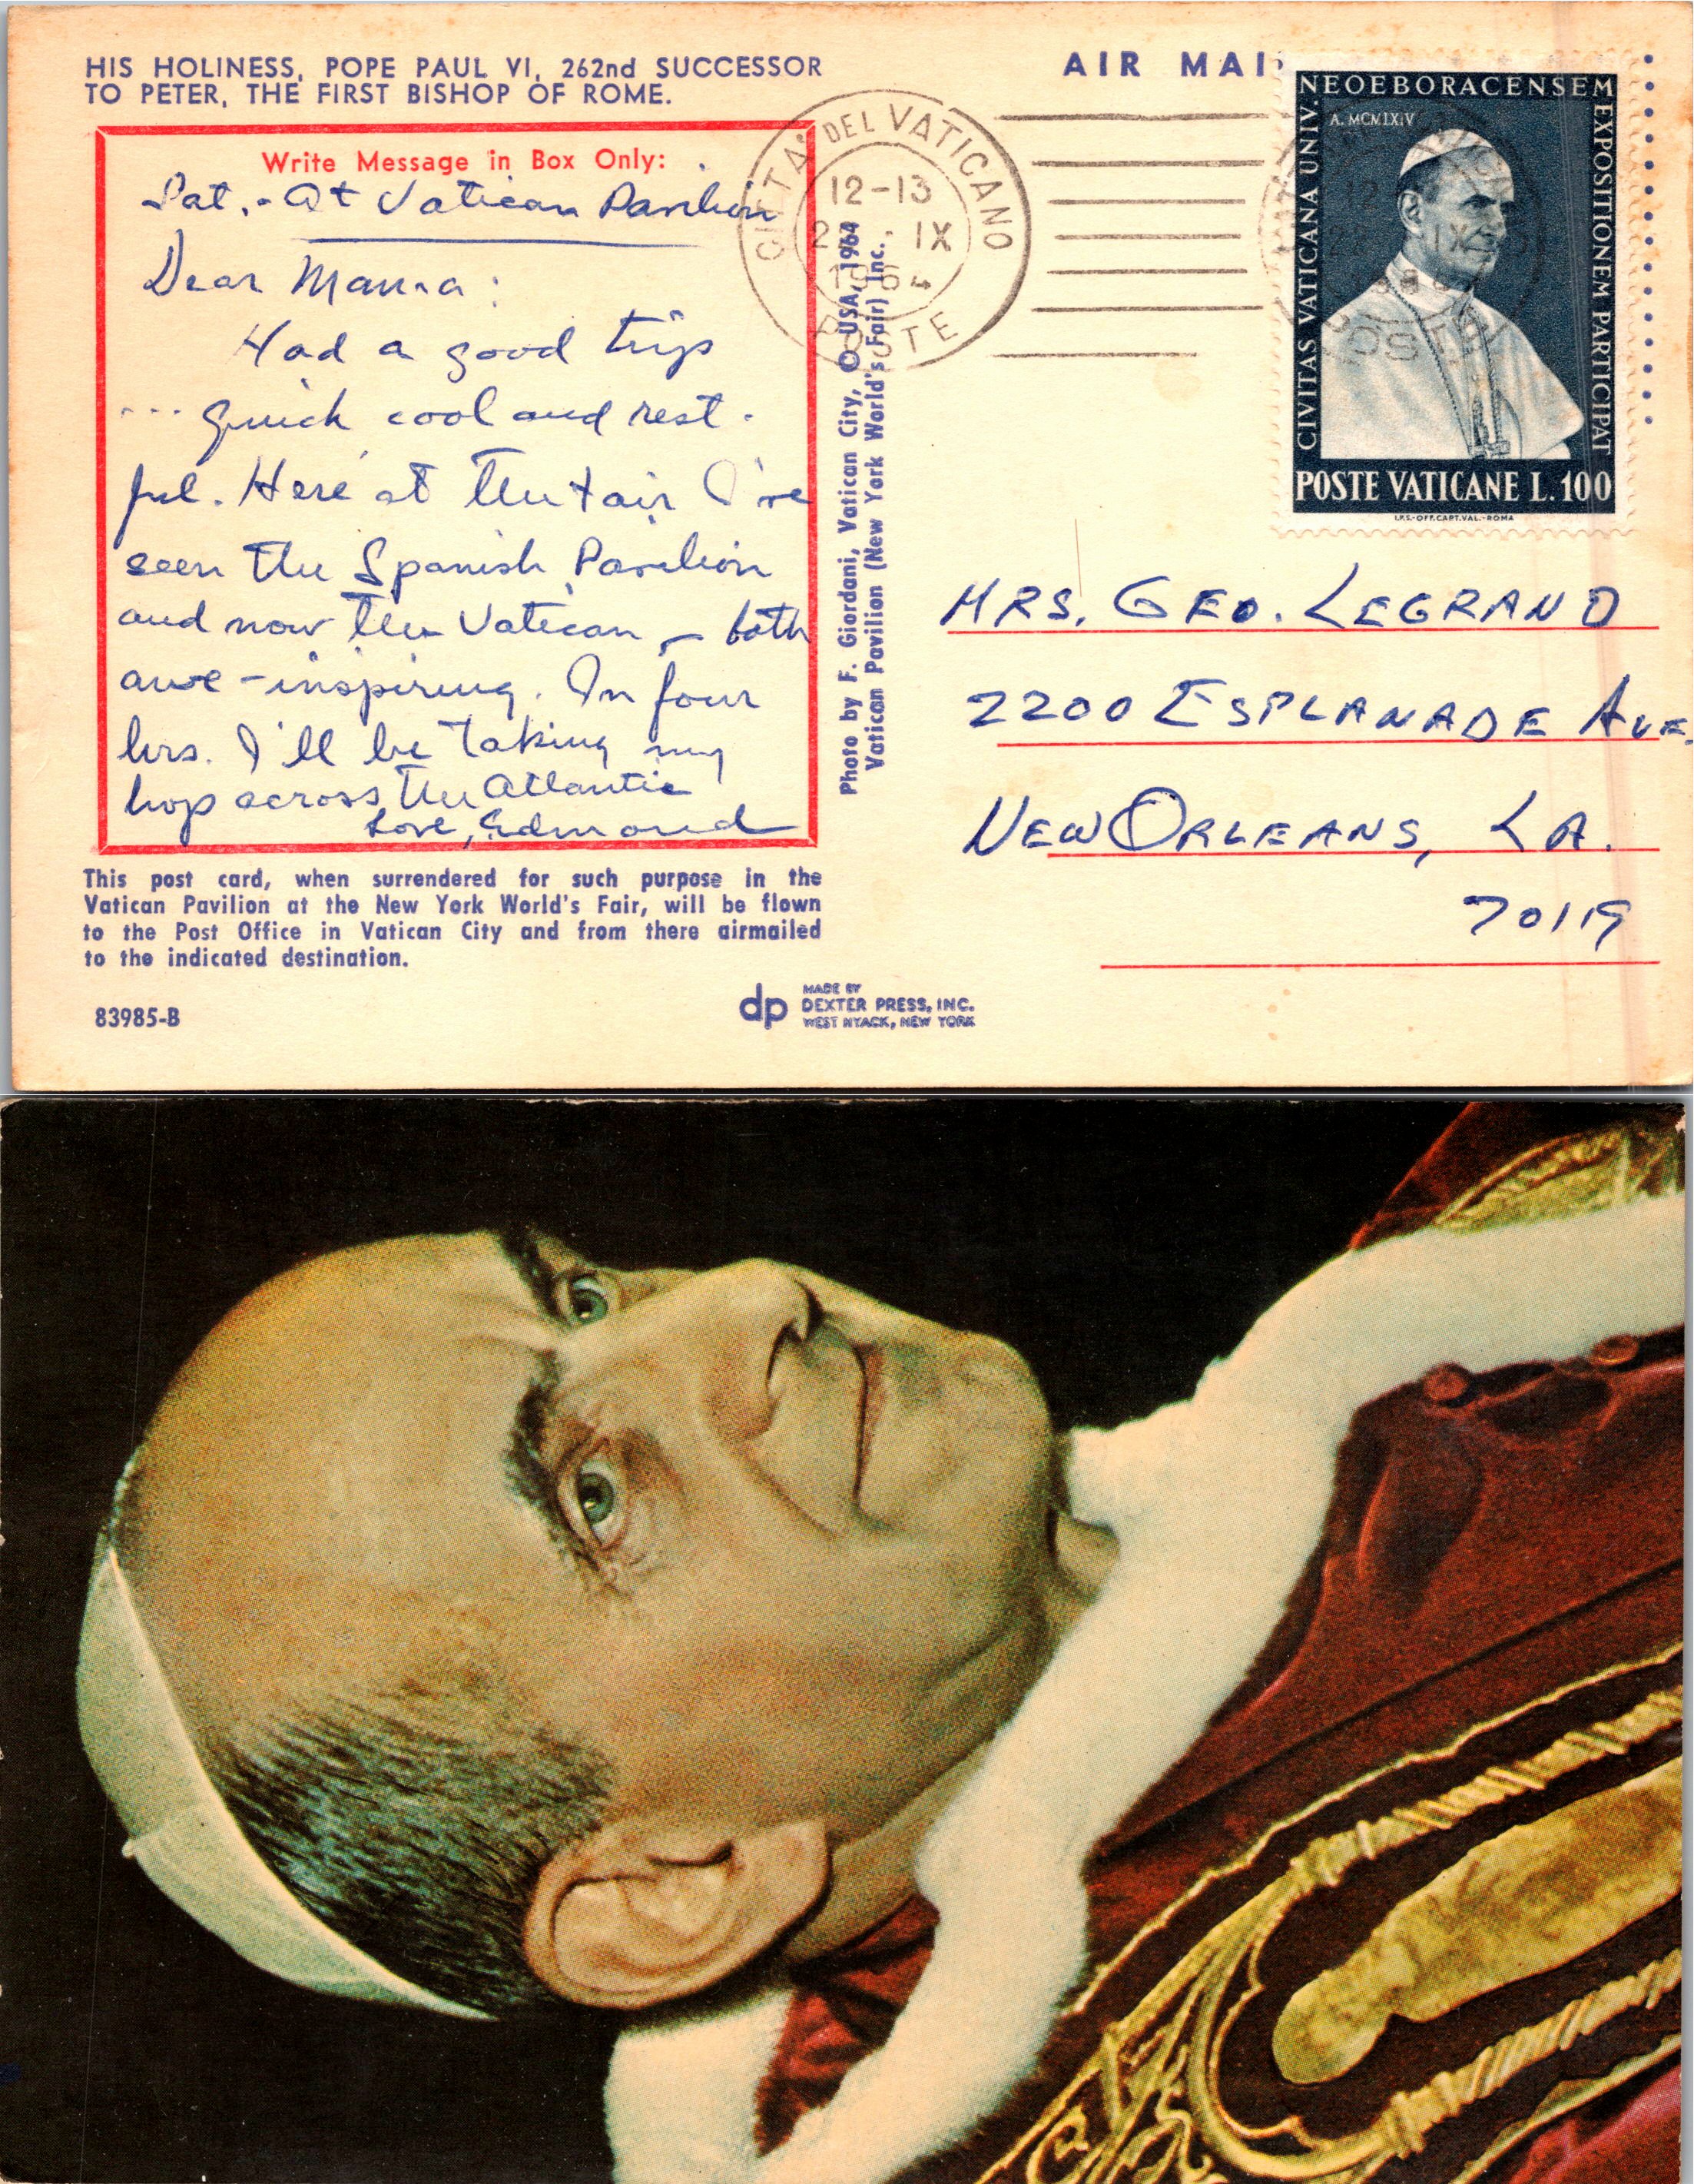 HIS HOLINESS, POPE PAUL VI, 262nd SUCCESSOR
TO PETER, THE FIRST BISHOP OF ROME.
Write Message in Box Only:
Sat.- At Vatican Pavilion
Dear Mama:
Had a good trip
... quick cool and rest-
ful. Here at the fair I've
seen the Spanish Pavilion
and now the Vatican - both
awe-inspiring. In four
hrs. I'll be taking my
hop across the Atlantic
Love, Edmond
This post card, when surrendered for such purpose in the
Vatican Pavilion at the New York World's Fair, will be flown
to the Post Office in Vatican City and from there airmailed
to the indicated destination.
83985-B
dp
MADE BY
DEXTER PRESS, INC.
WEST NYACK, NEW YORK
Photo by F. Giordani, Vatican City, © USA, 1964
Vatican Pavilion (New York World's Fair) Inc.
CITTA' DEL VATICANO
12-13
IX
1964
POSTE
AIR MAI
NEOEBORACENSEM
CIVITAS VATICANA UNIV.
EXPOSITIONEM PARTICIPAT
A. MCMLXIV
POSTE VATICANE L.100
I.P.S.-OFF.CART.VAL.-ROMA
MRS. GEO. LEGRAND
2200 ESPLANADE AVE.
NEW ORLEANS, LA.
70119